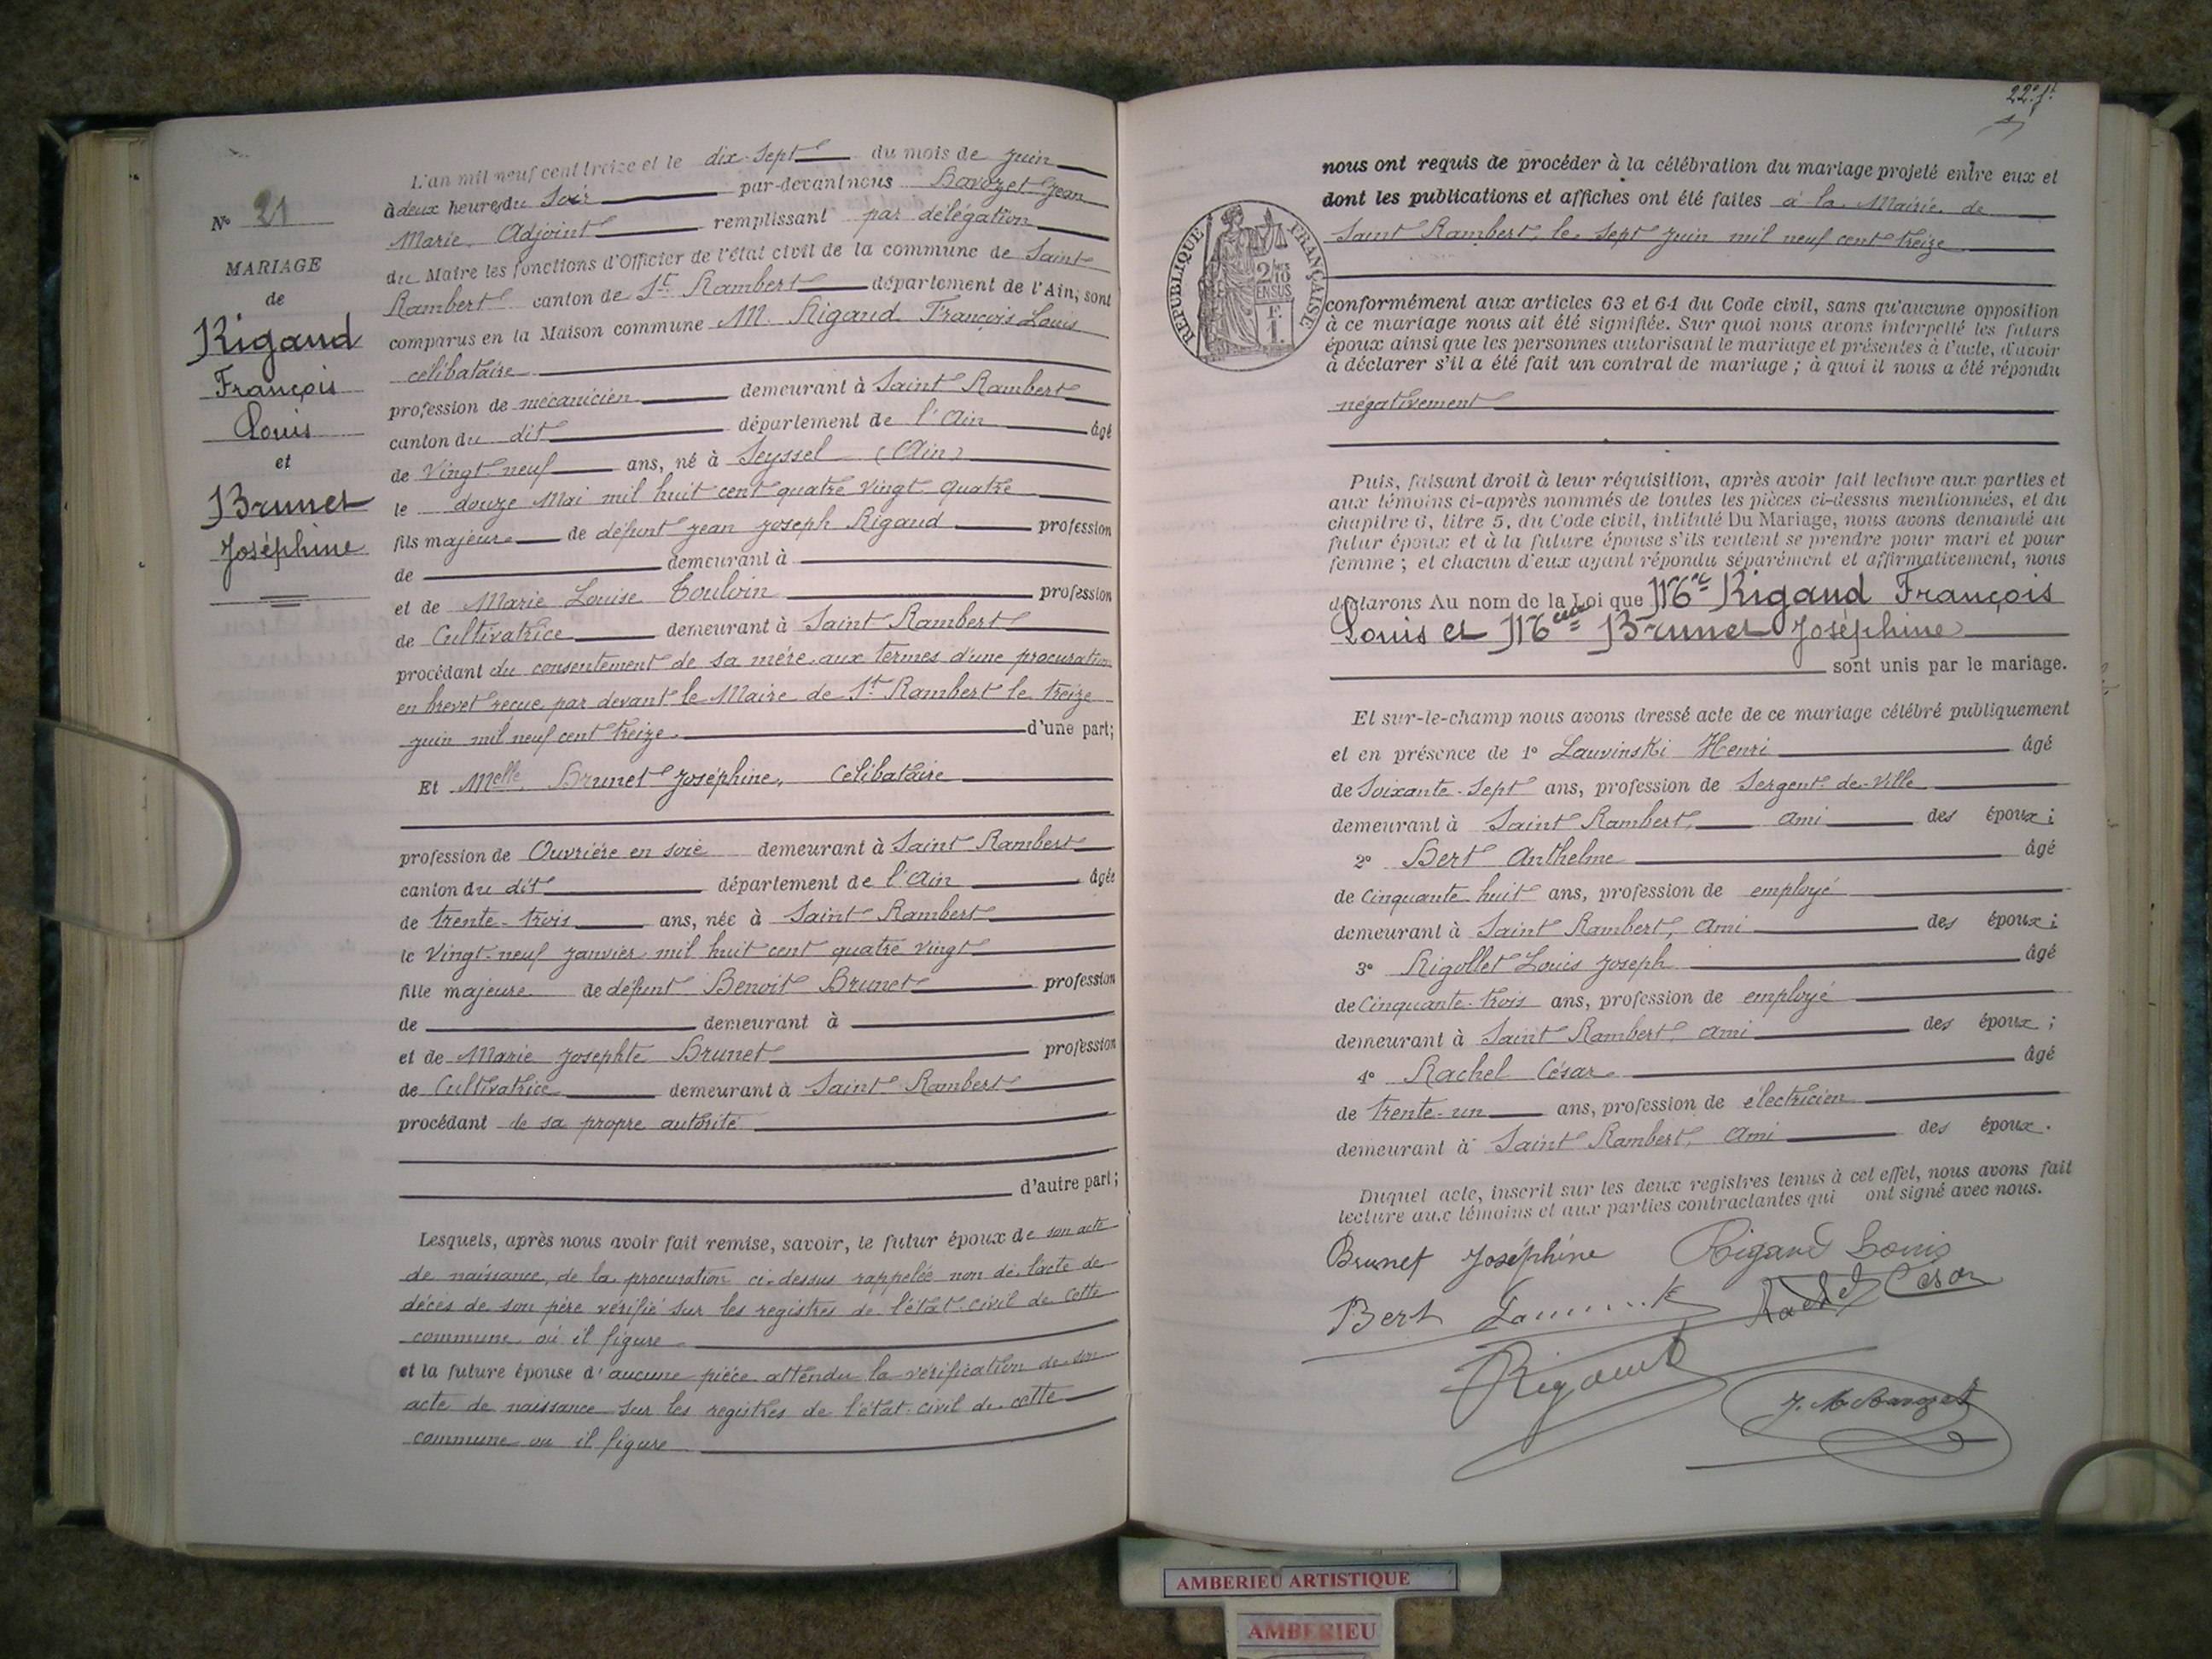 L'an mil neuf cent treize et le dix-sept du mois de juin
à deux heures du soir par-devant nous Bavozet Jean
Marie, Adjoint remplissant par délégation
du Maire les fonctions d'Officier de l'état civil de la commune de Saint
Rambert canton de St Rambert département de l'Ain, sont
comparus en la Maison commune M. Rigaud François Louis
célibataire
profession de mécanicien demeurant à Saint Rambert
canton du dit département de l'Ain âgé
de vingt-neuf ans, né à Seyssel (Ain)
le douze Mai mil huit cent quatre vingt quatre
fils majeur de défunt Jean Joseph Rigaud profession
de demeurant à
et de Marie Louise profession
de Cultivatrice demeurant à Saint Rambert
procédant du consentement de sa mère aux termes d'une procuration
en brevet reçue par devant le Maire de St Rambert le treize
juin mil neuf cent treize. d'une part;
Et Melle Brunet Joséphine, célibataire
profession de Ouvrière en soie demeurant à Saint Rambert
canton du dit département de l'Ain âgée
de trente-trois ans, née à Saint Rambert
le vingt-neuf janvier mil huit cent quatre vingt
fille majeure de défunt Benoit Brunet profession
de demeurant à
et de Marie Josephte Brunet profession
de Cultivatrice demeurant à Saint Rambert
procédant de sa propre autorité
d'autre part;
Lesquels, après nous avoir fait remise, savoir, le futur époux de son acte
de naissance, de la procuration ci-dessus rappelée non de l'acte de
décès de son père vérifié sur les registres de l'état-civil de cette
commune où il figure
et la future épouse d'aucune pièce attendu la vérification de son
acte de naissance sur les registres de l'état-civil de cette
commune où il figure
No 21
MARIAGE
de
Rigaud
François
Louis
et
Brunet
Joséphine
22e ft
RÉPUBLIQUE FRANÇAISE
2/10
EN SUS
F.
1.
nous ont requis de procéder à la célébration du mariage projeté entre eux et
dont les publications et affiches ont été faites à la Mairie de
Saint Rambert, le sept juin mil neuf cent treize
conformément aux articles 63 et 64 du Code civil, sans qu'aucune opposition
à ce mariage nous ait été signifiée. Sur quoi nous avons interpellé les futurs
époux ainsi que les personnes autorisant le mariage et présentes à l'acte, d'avoir
à déclarer s'il a été fait un contrat de mariage; à quoi il nous a été répondu
négativement
Puis, faisant droit à leur réquisition, après avoir fait lecture aux parties et
aux témoins ci-après nommés de toutes les pièces ci-dessus mentionnées, et du
chapitre 6, titre 5, du Code civil, intitulé Du Mariage, nous avons demandé au
futur époux et à la future épouse s'ils veulent se prendre pour mari et pour
femme; et chacun d'eux ayant répondu séparément et affirmativement, nous
déclarons Au nom de la Loi que Mr Rigaud François
Louis et Melle Brunet Joséphine
sont unis par le mariage.
Et sur-le-champ nous avons dressé acte de ce mariage célébré publiquement
et en présence de 1o Lauvinski Henri âgé
de soixante-sept ans, profession de Sergent-de-ville
demeurant à Saint Rambert, ami des époux;
2o Bert Anthelme âgé
de cinquante huit ans, profession de employé
demeurant à Saint Rambert, ami des époux;
3o Rigollet Louis Joseph âgé
de cinquante-trois ans, profession de employé
demeurant à Saint Rambert, ami des époux;
4o Rachel César âgé
de trente-un ans, profession de électricien
demeurant à Saint Rambert, ami des époux.
Duquel acte, inscrit sur les deux registres tenus à cet effet, nous avons fait
lecture aux témoins et aux parties contractantes qui ont signé avec nous.
Brunet Joséphine Rigaud Louis
Bert Rachel César
J. M Bavozet
AMBERIEU ARTISTIQUE
AMBERIEU